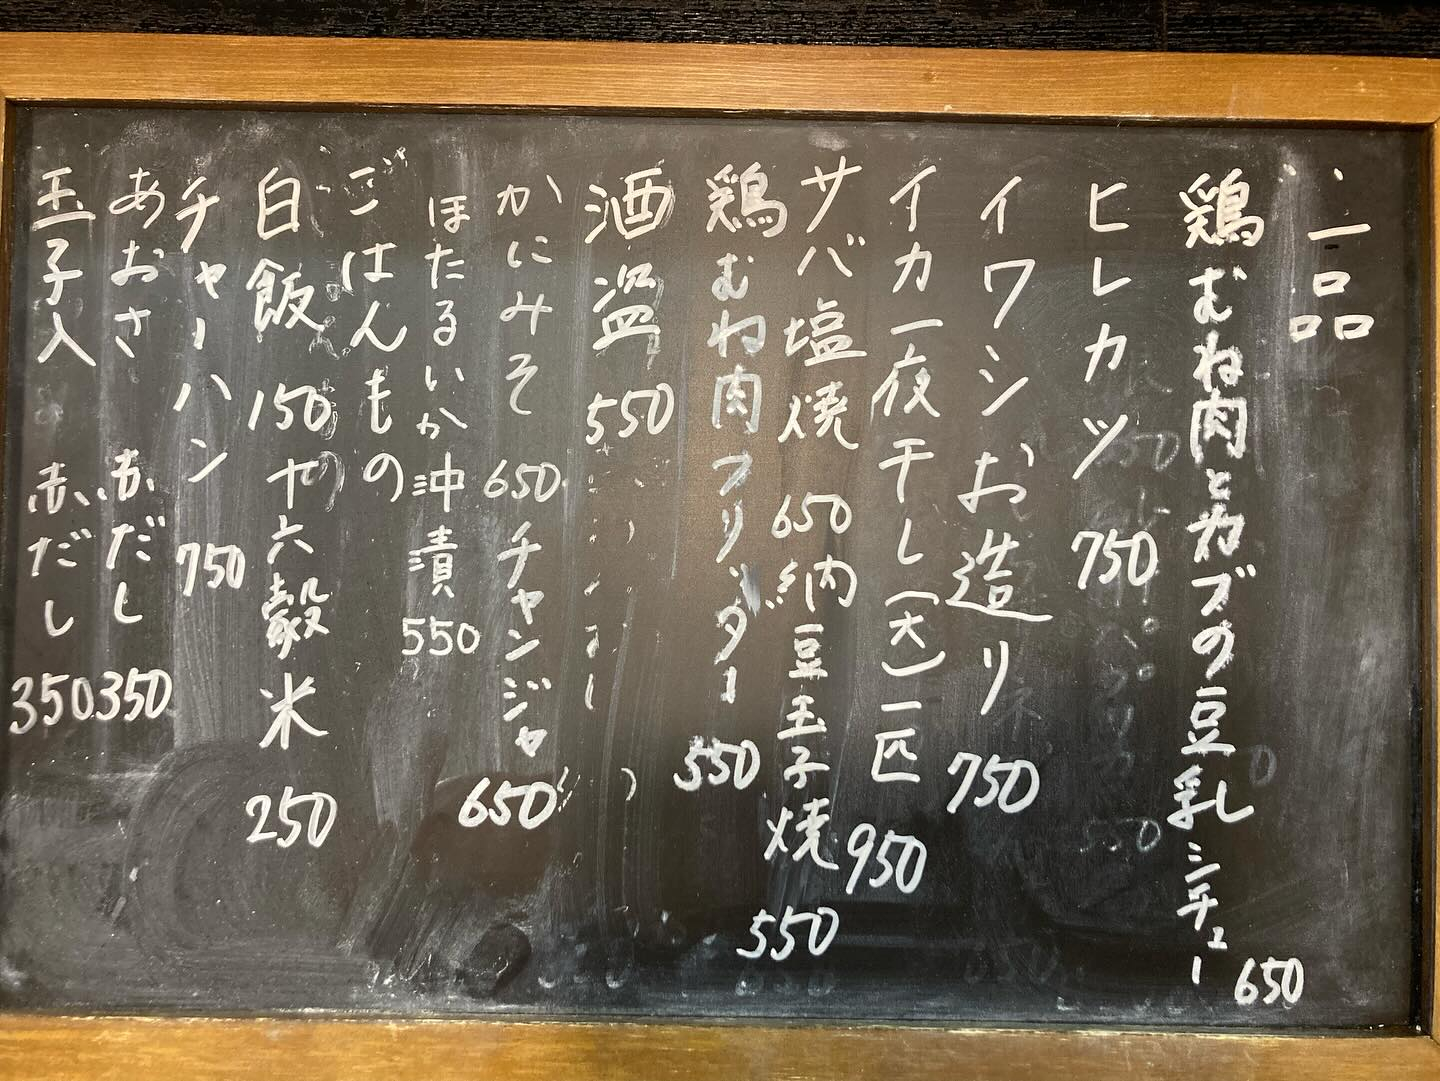 一品
鶏むね肉とカブの豆乳シチュー 650
ヒレカツ 750
イワシお造り 750
イカ一夜干し(大)一匹 950
サバ塩焼 650 納豆玉子焼 550
鶏むね肉フリッター 550
酒盗 550
かにみそ 650 チャンジャ 650
ほたるいか沖漬 550
ごはんもの
白飯 150 十六穀米 250
チャーハン 750
あおさ 赤だし 350
玉子入 赤だし 350